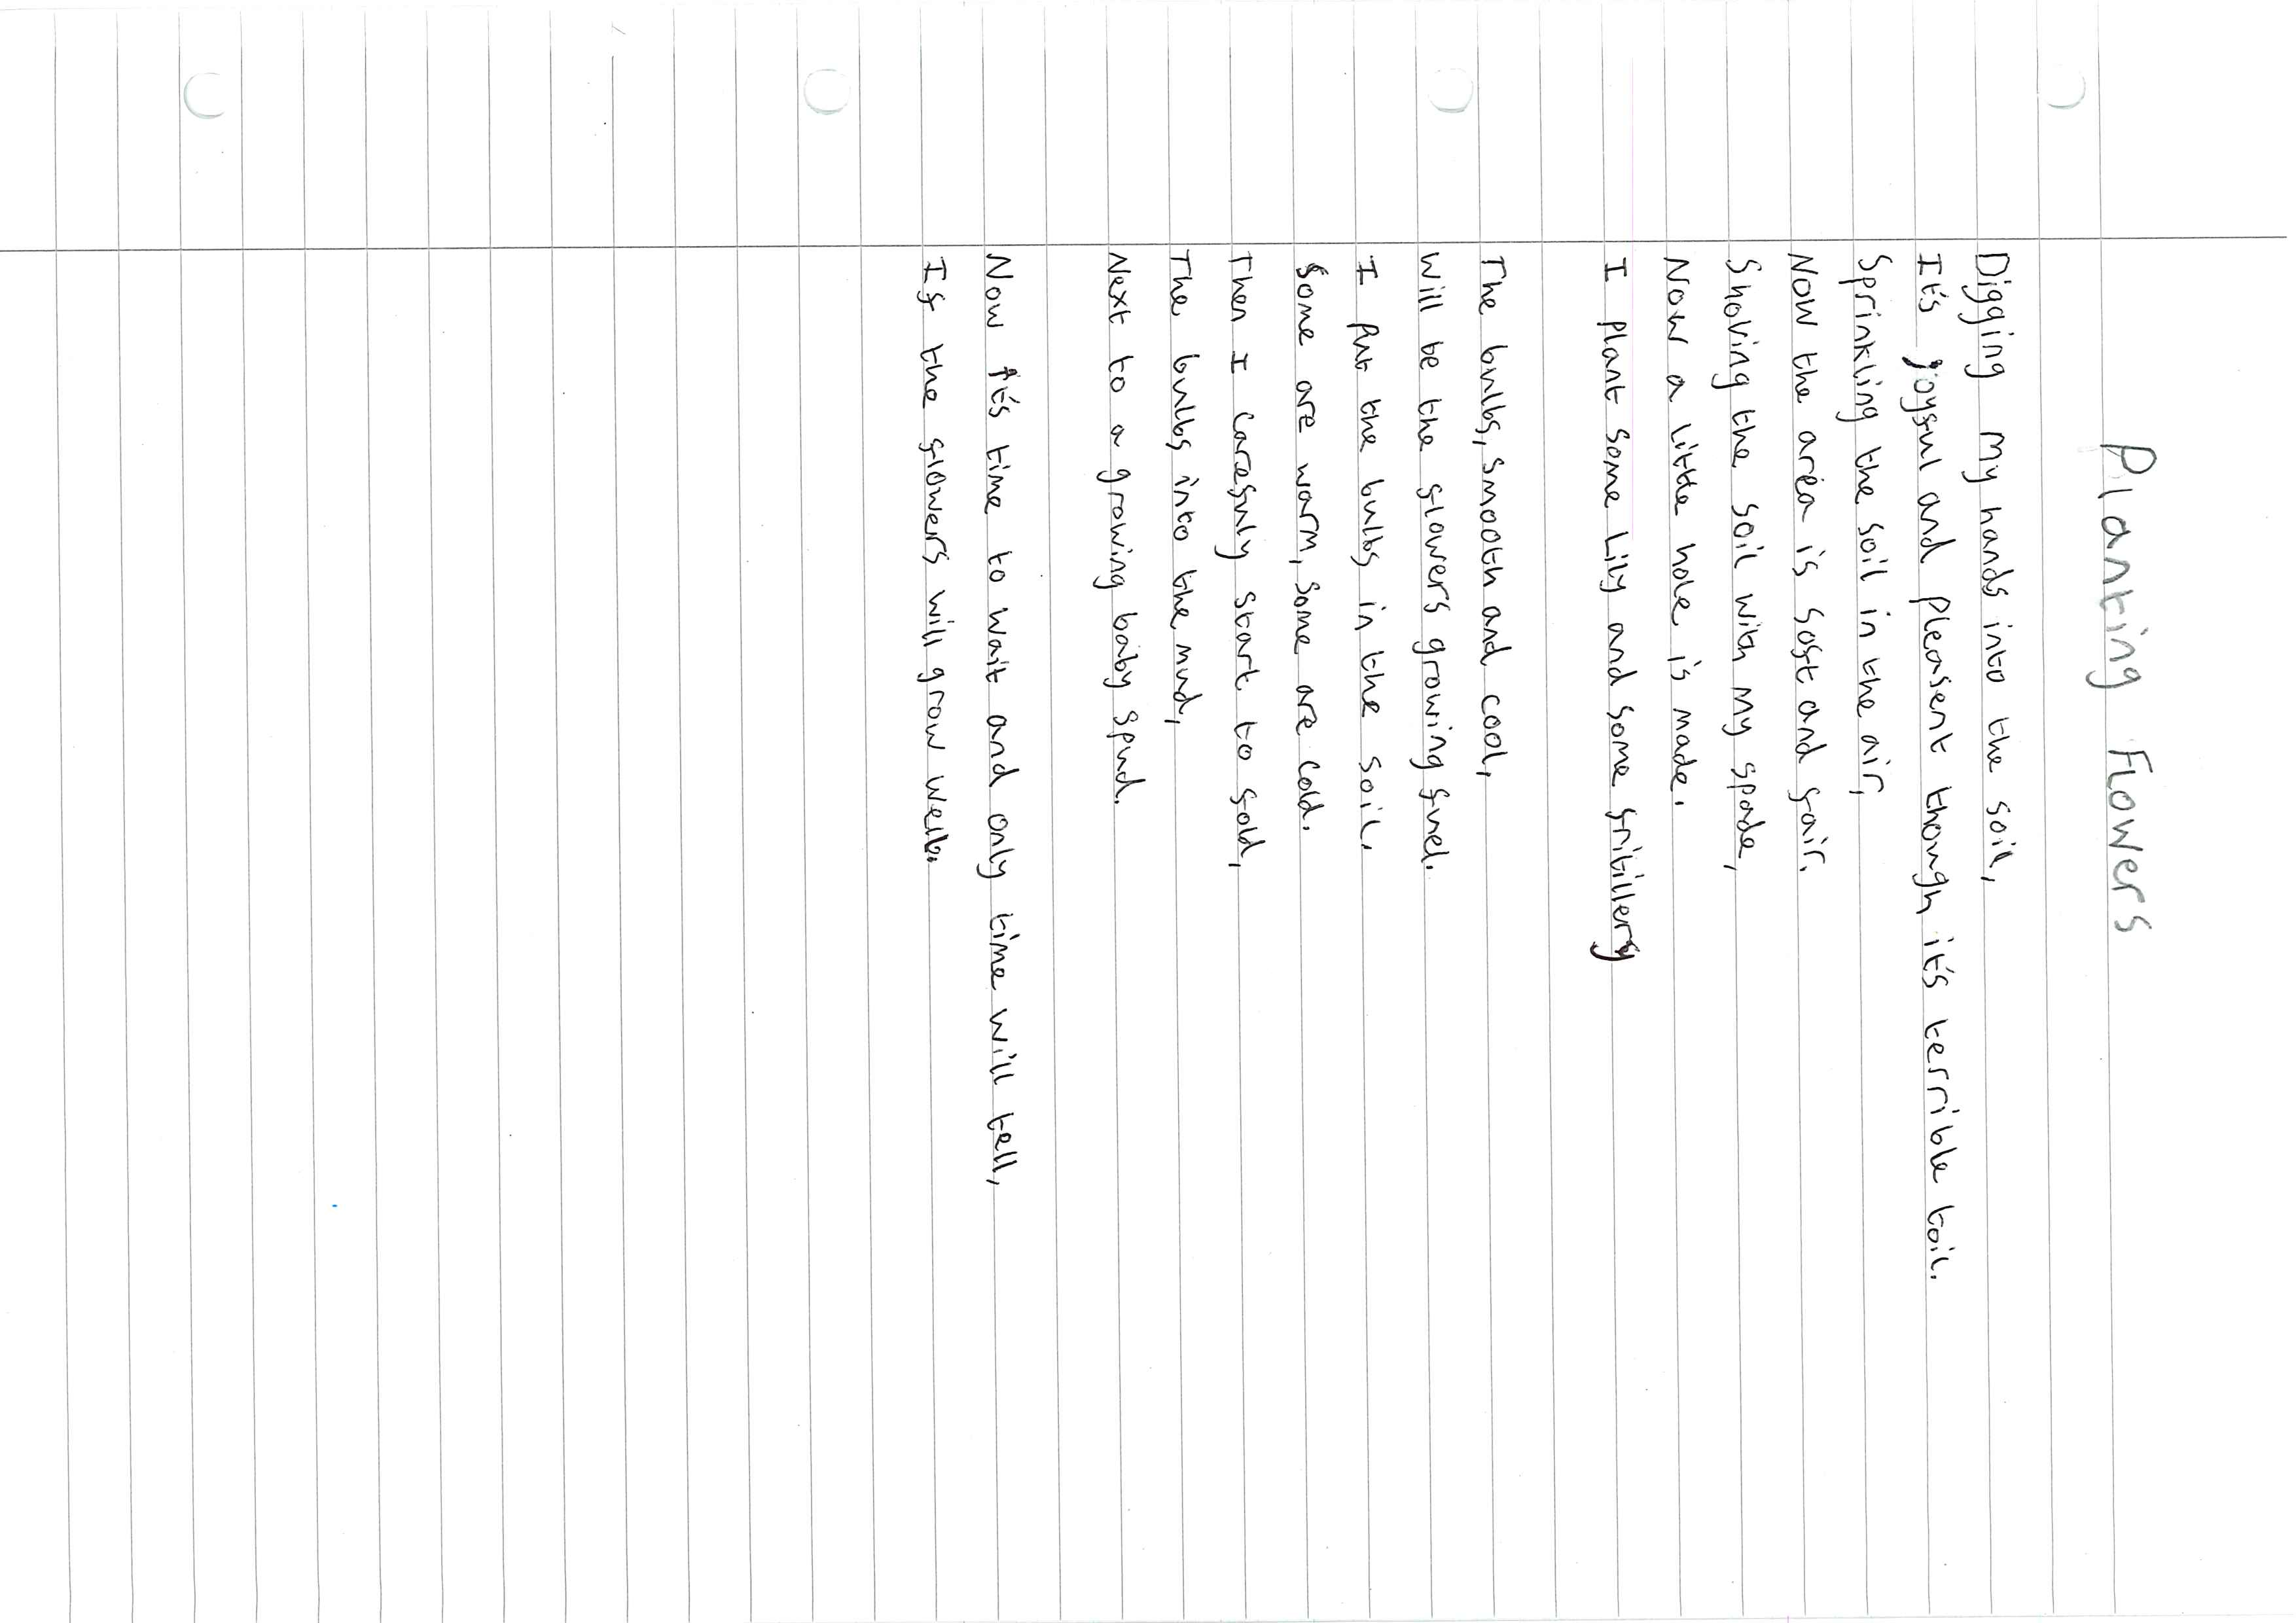 Planting Flowers
Digging my hands into the soil,
It's joyful and pleasent though it's terrible toil.
Sprinkling the soil in the air,
Now the area is soft and fair.
Shoving the soil with my spade,
Now a little hole is made.
I plant some Lily and some fritillery
The bulbs, smooth and cool,
Will be the flowers growing fuel.
I put the bulbs in the soil.
Some are warm, some are cold.
Then I carefuly start to fold,
The bulbs into the mud,
Next to a growing baby spud.
Now it's time to wait and only time will tell,
If the flowers will grow well.